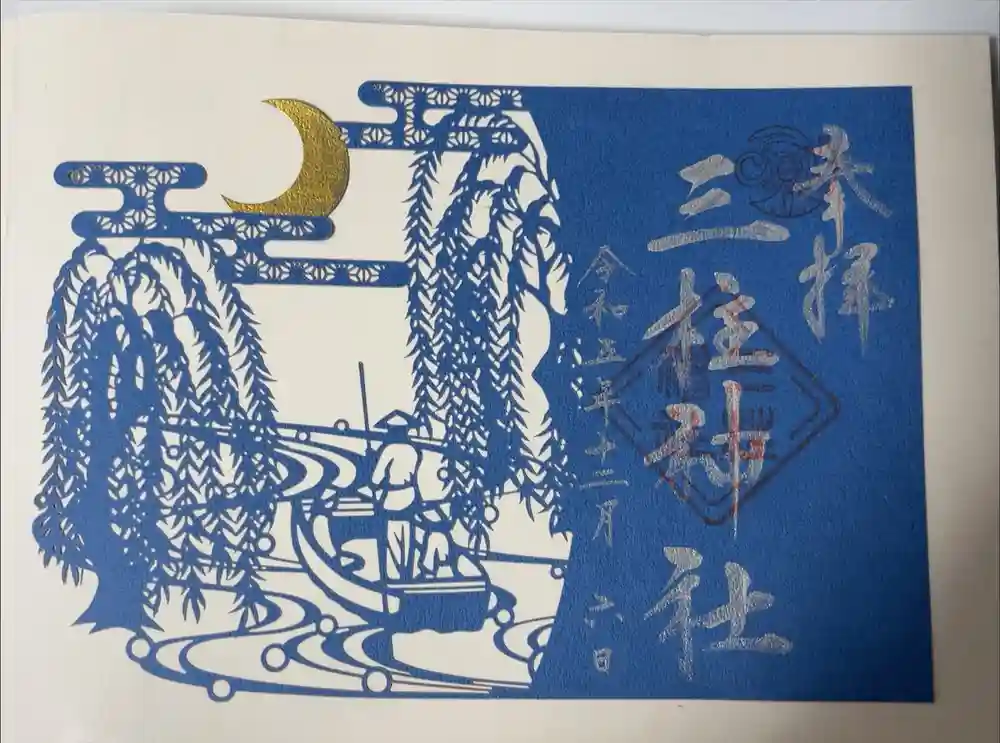 奉拝
三柱神社
令和五年十二月六日